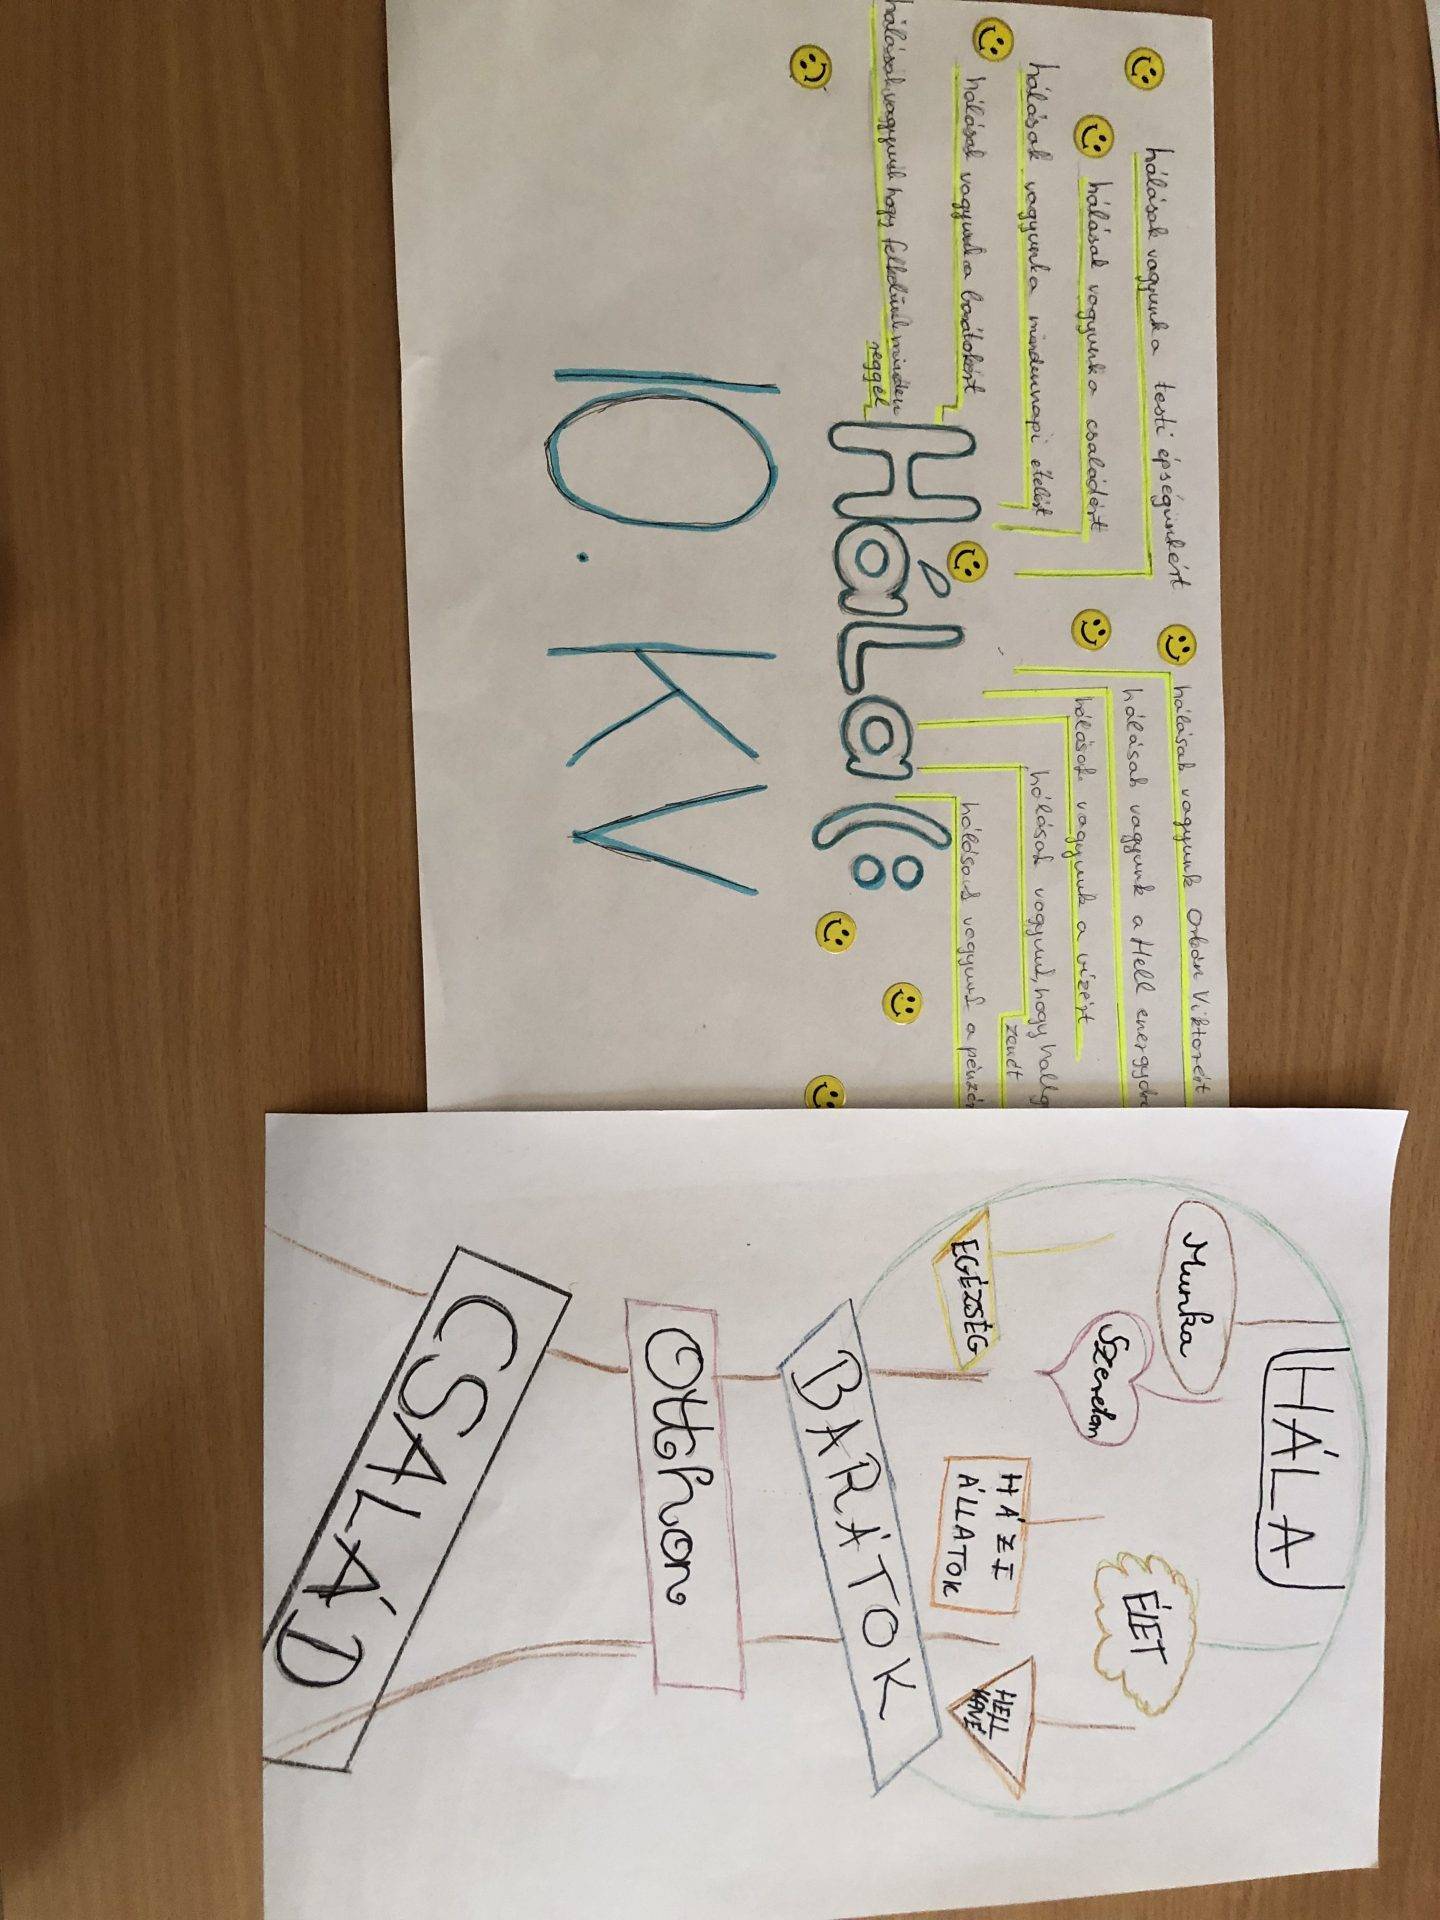 hálásak vagyunka testi épségünkért
hálásak vagyunka családért
hálásak vagyunka mindennapi ételért
hálásak vagyunka barátokért
hálásak vagyunk hogy felkelünk minden
reggel
hálásak vagyunk Orbán Viktorért
hálásak vagyunk a Hell energydr
hálásak vagyunk a vízért
hálásak vagyunk, hogy hallg
zenét
hálásak vagyunk a pénzér
Hála(:
10. KV
HÁLA
Munka
Szerelem
ÉLET
EGÉZSÉG
HÁZI
ÁLLATOK
HELL
KÁVÉ
BARÁTOK
Otthon
CSALÁD